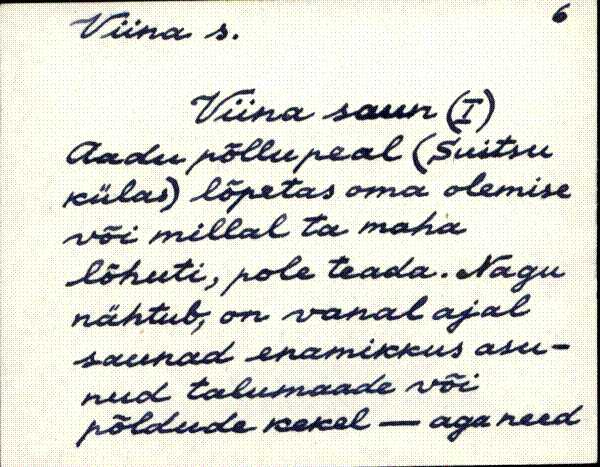 6
Viina s.
Viina saun (I)
Aadu põllu peal (Suitsu
külas) lõpetas oma olemise
või millal ta maha
lõhuti, pole teada. Nagu
nähtub, on vanal ajal
saunad enamikkus asu-
nud talumaade või
põldude kekel — aga need